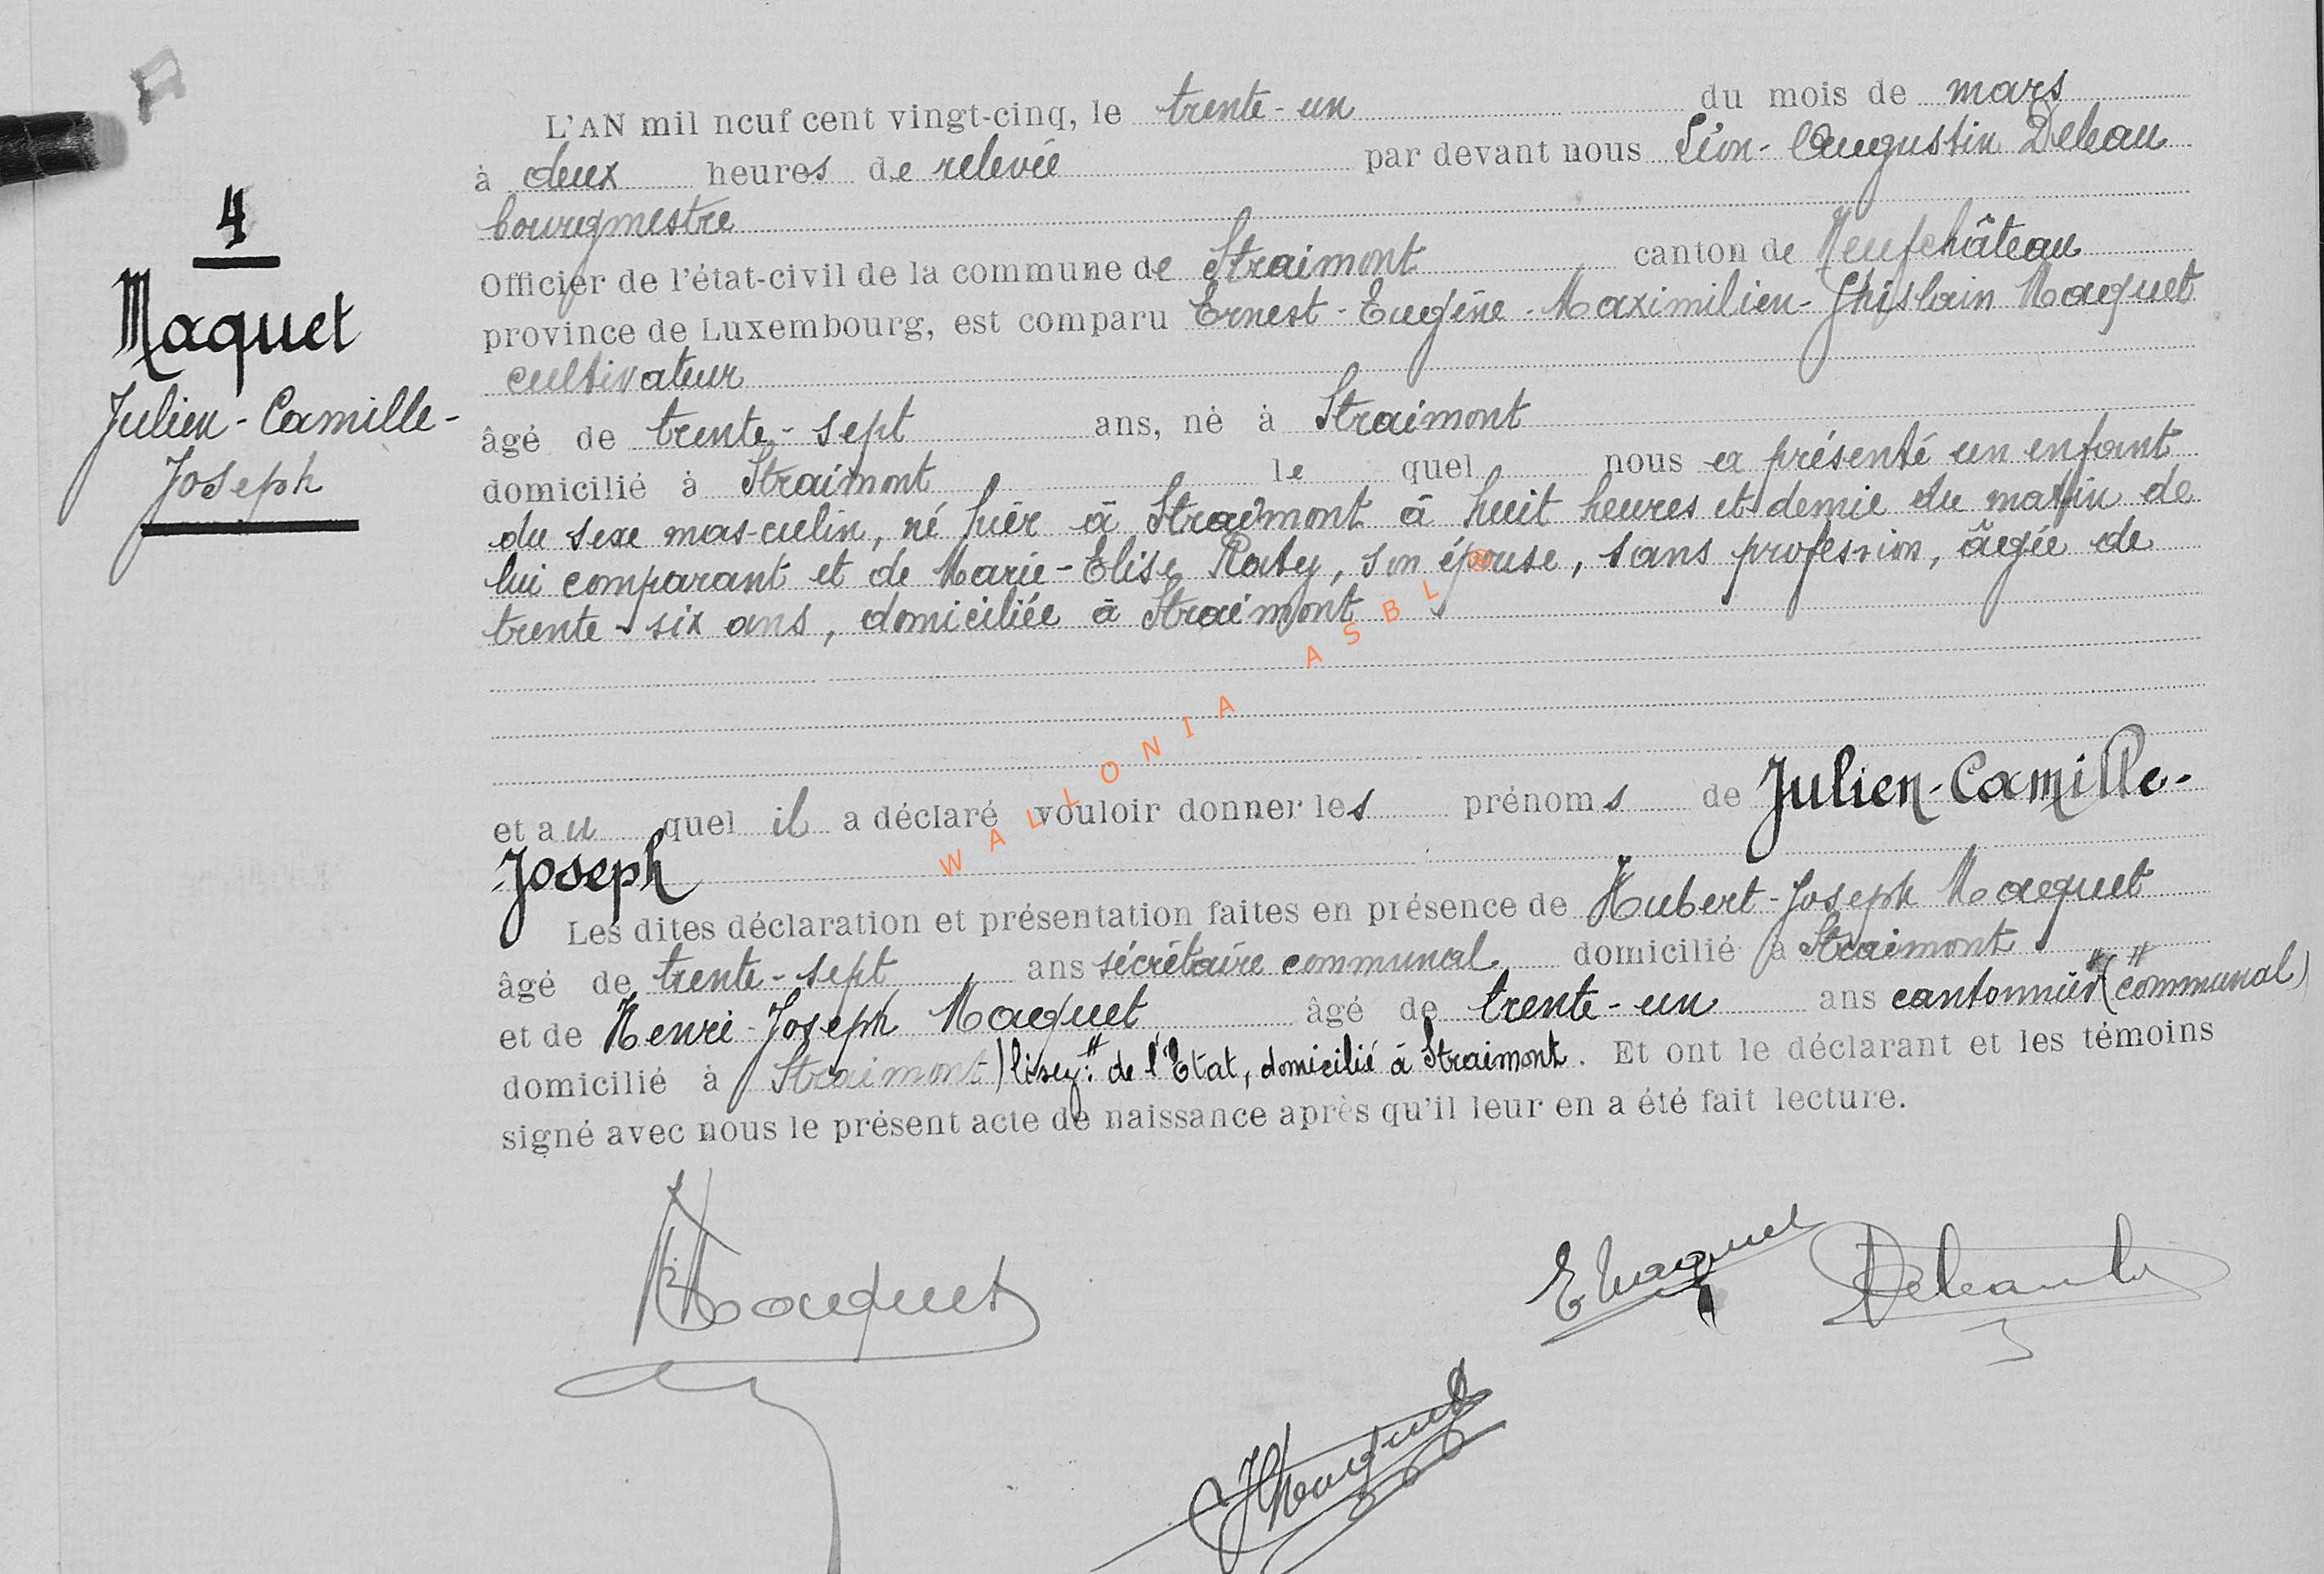 4
Maquet
Julien-Camille-
Joseph
L'AN mil neuf cent vingt-cinq, le trente-un du mois de mars
à deux heures de relevée par devant nous Léon-Augustin Deleau
bourgmestre
Officier de l'état-civil de la commune de Straimont canton de Neufchâteau
province de Luxembourg, est comparu Ernest-Eugène-Maximilien-Ghislain Maquet
cultivateur
âgé de trente-sept ans, né à Straimont
domicilié à Straimont le quel nous a présenté un enfant
du sexe mas-culin, né hier à Straimont à huit heures et demie du matin de
lui comparant et de Marie-Elise Raty, son épouse, sans profession, âgée de
trente-six ans, domiciliée à Straimont
et au quel il a déclaré vouloir donner les prénoms de Julien-Camille-
Joseph
Les dites déclaration et présentation faites en présence de Hubert-Joseph Maquet
âgé de trente-sept ans sécrétaire communal domicilié à Straimont
et de Henri-Joseph Maquet âgé de trente-un ans cantonnier (communal)
domicilié à Straimont) lisez: de l'Etat, domicilié à Straimont. Et ont le déclarant et les témoins
signé avec nous le présent acte de naissance après qu'il leur en a été fait lecture.
Maquet
E Maquet
HMaquet
WALLONIA ASBL ®